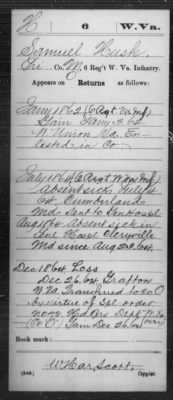 H 6 W.Va.
Samuel Hush
Co. M, 6 Reg't W. Va. Infantry.
Appears on Returns as follows:
Jany 1862 (6 Regt W Va Inf)
Gain Jany 2.62
W. Union Va. En-
listed in Co
July 1864 (6 Regt W Va Inf)
Absent sick July 64
64. Cumberland
Md Sent to Gen Hospl
Aug 1864 Absent sick in
Genl Hospl Clarysville
Md since Aug 2.64.
Dec 1864 Loss
Dec 26.64, Grafton
W. Va Transferred to Co O
by virtue of Spl order
Hd Qrs Dept W. Va
(Co O) Gain Dec 26.64 (over)
Book mark:
W Har Scott,
(546) Copyist.